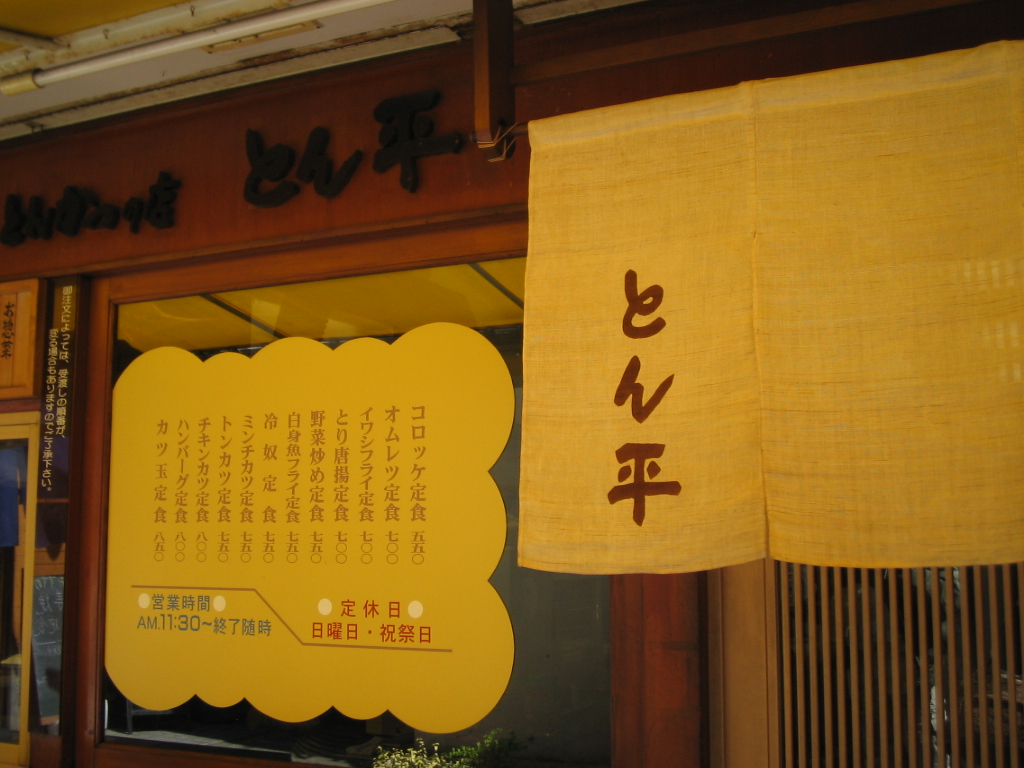 とんかつの店
とん平
とん平
お惣菜
御注文によっては、受渡しの順番が、
異る場合もありますのでご了承下さい。
コロッケ定食 五五〇
オムレツ定食 七〇〇
イワシフライ定食 七〇〇
とり唐揚定食 七〇〇
野菜炒め定食 七五〇
白身魚フライ定食 七五〇
冷奴定食 七五〇
ミンチカツ定食 七五〇
トンカツ定食 七五〇
チキンカツ定食 八〇〇
ハンバーグ定食 八〇〇
カツ玉定食 八五〇
営業時間
AM.11:30～終了随時
定休日
日曜日・祝祭日